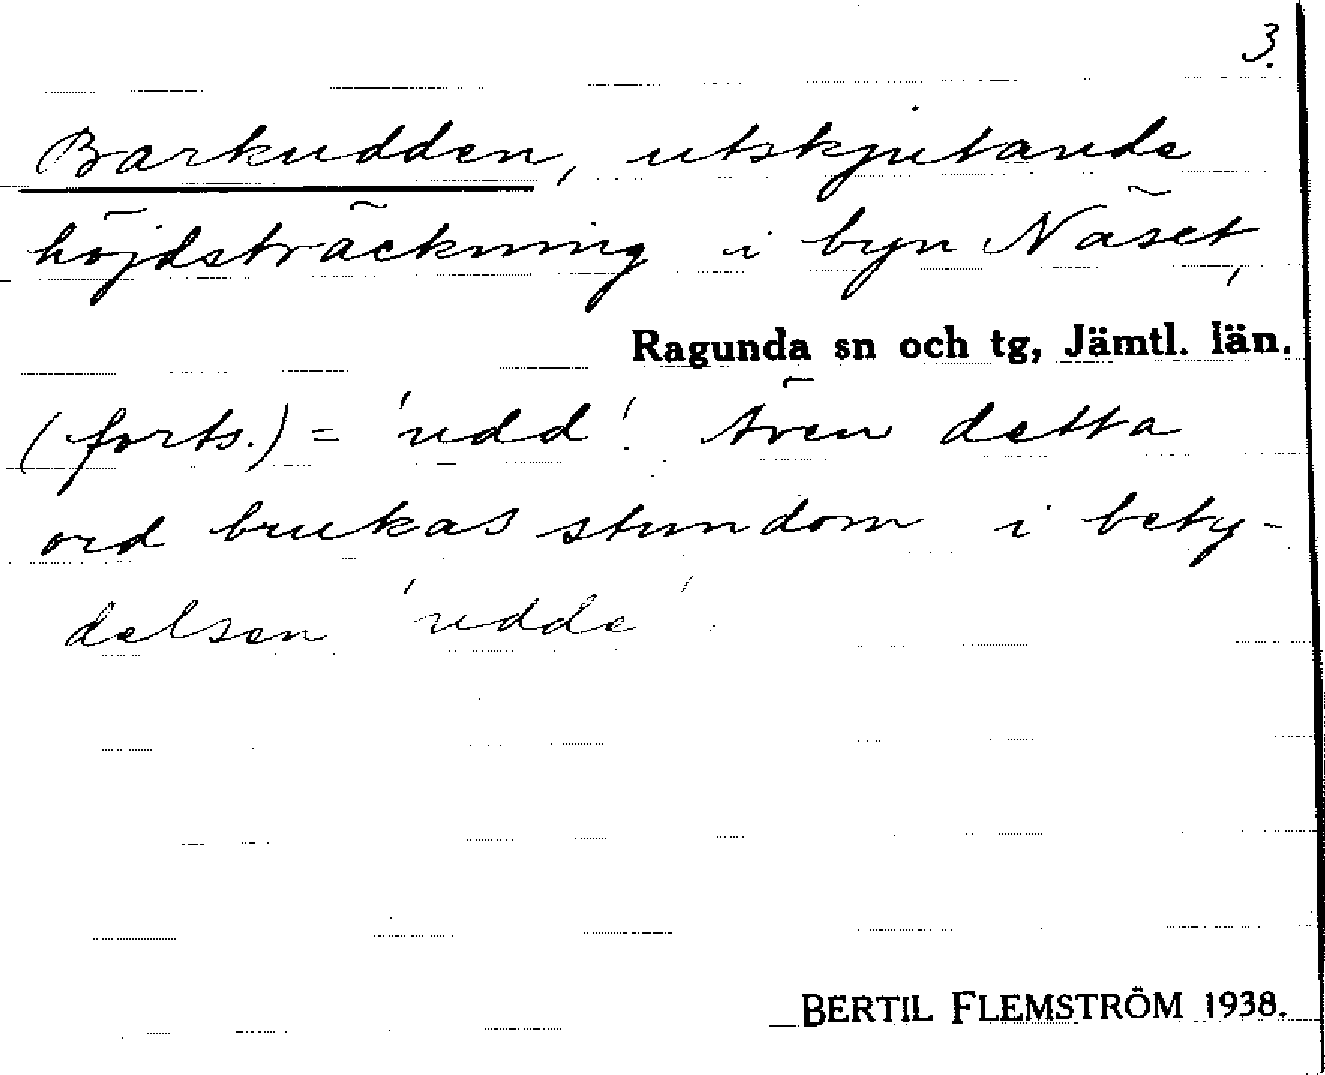 3.
Barkudden, utskjutande
höjdsträckning i byn Näset,
Ragunda sn och tg, Jämtl. län.
(forts.) = 'udd'. Även detta
ord brukas stundom i bety-
delsen 'udde'.
BERTIL FLEMSTRÖM 1938.